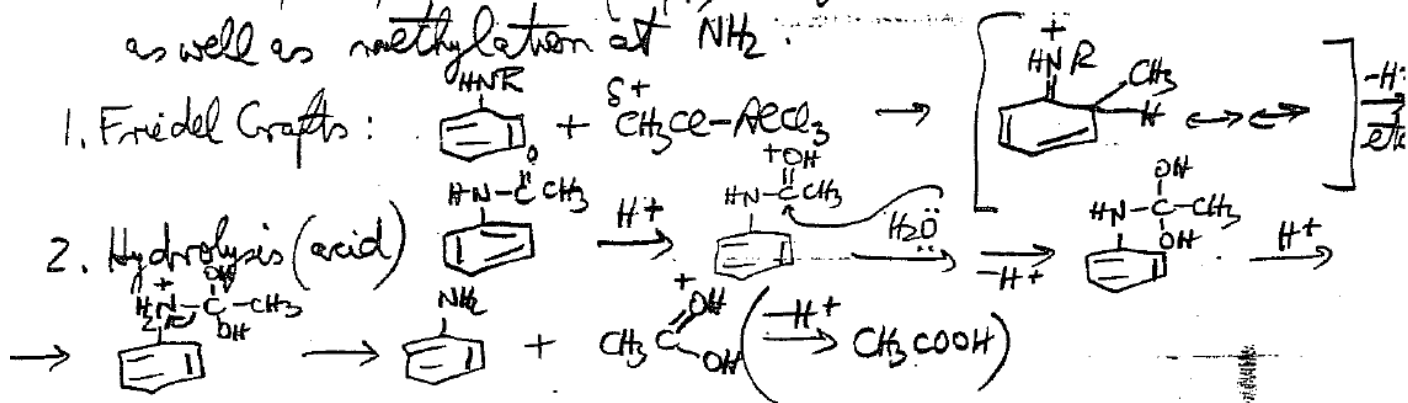 as well as methylation at NH2.
1. Friedel Crafts: HNR + δ+ CH3Cl-AlCl3 → [ + HNR CH3 H ↔ ↔ ] -H+ etc
2. Hydrolysis (acid) HN-C CH3 O H+ → HN-C CH3 +OH H2O → -H+ → HN-C-CH3 OH OH H+ →
→ H2N+-C-CH3 OH OH → NH2 + CH3 C +OH OH ( -H+ → CH3COOH )